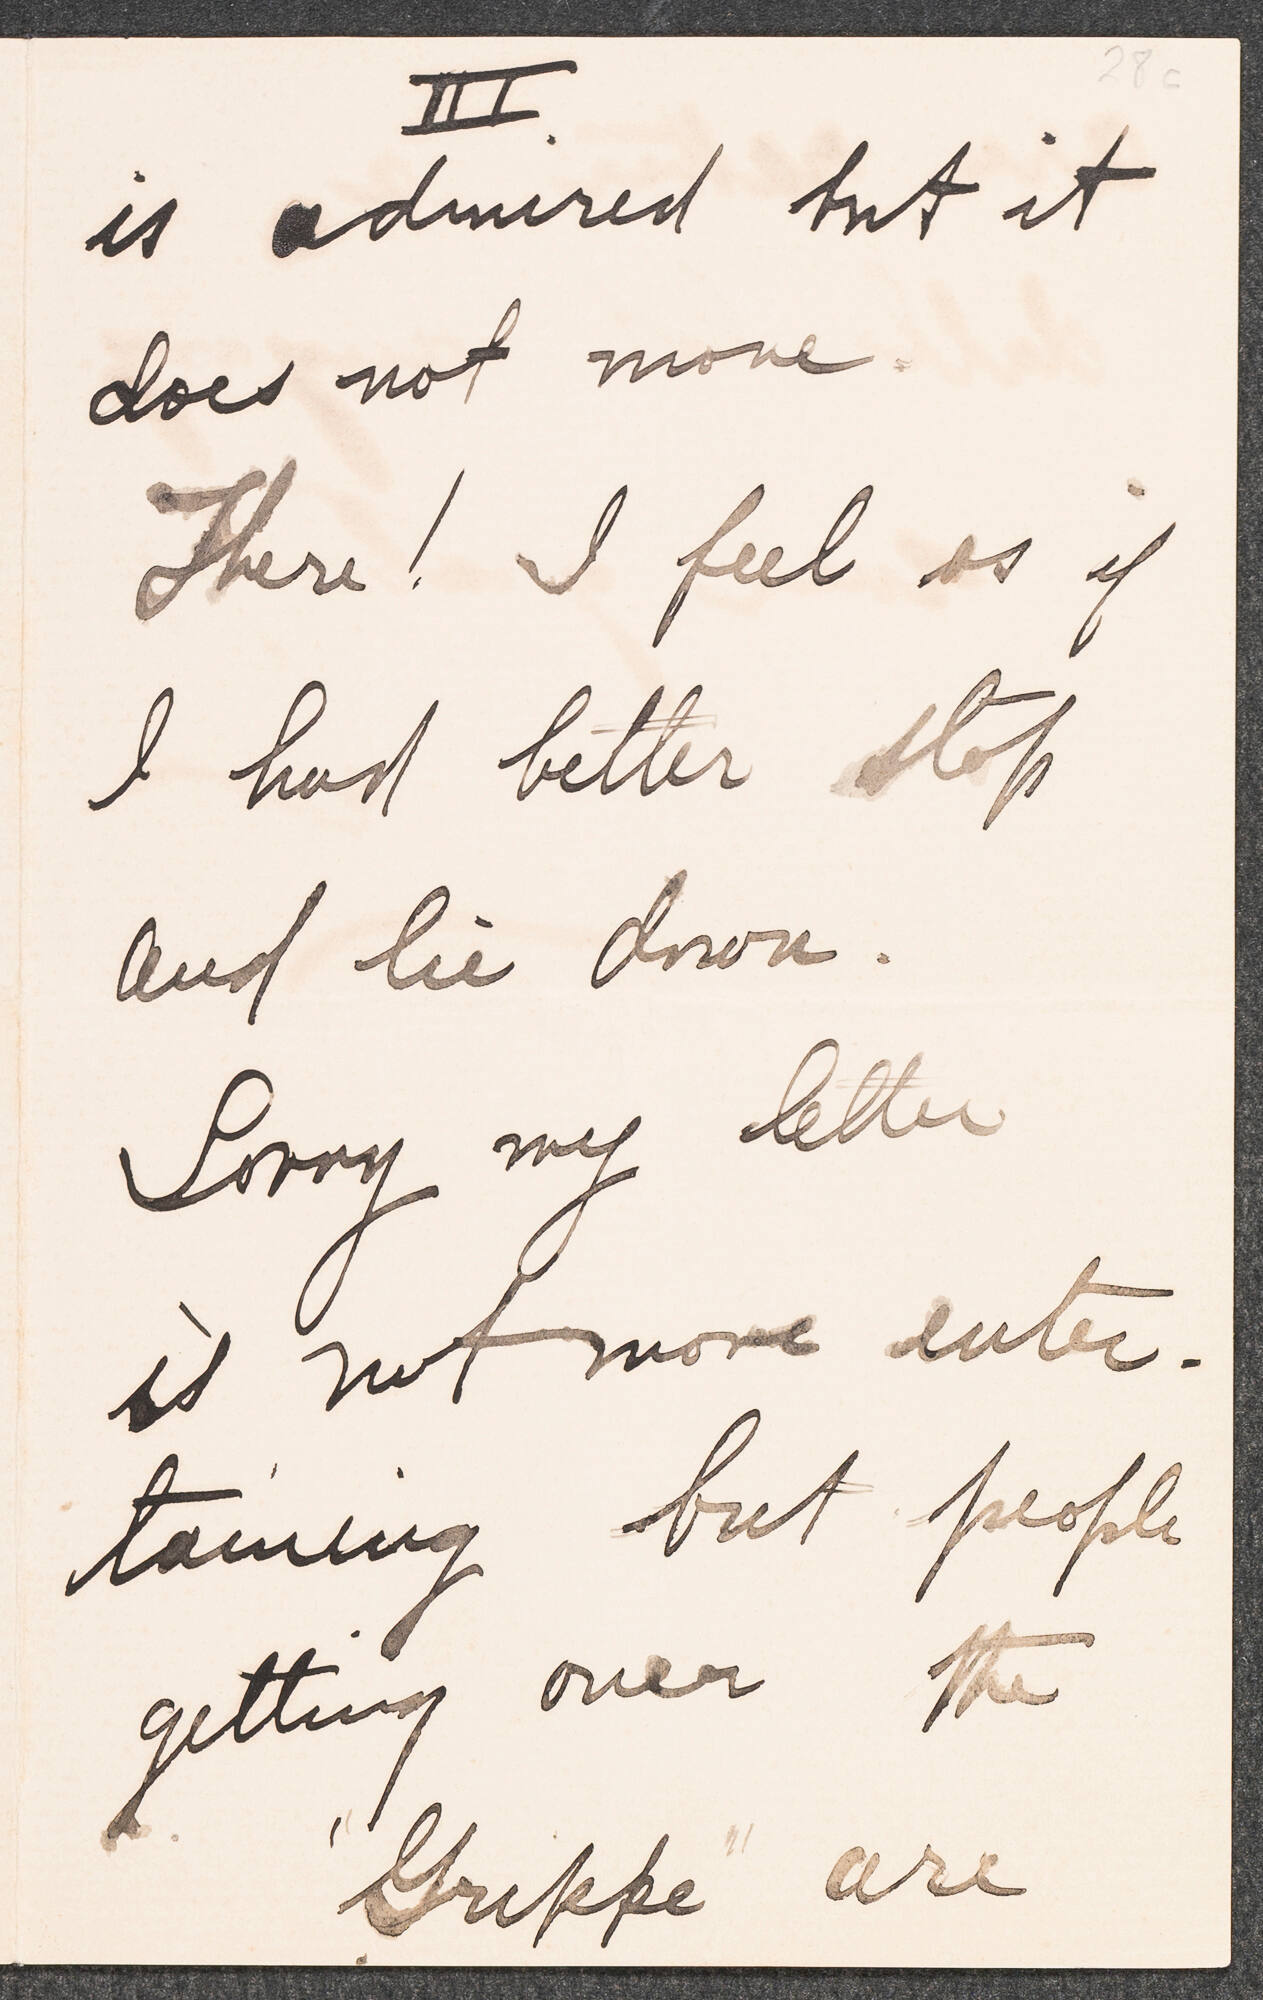 28c
III
is admired but it
does not move.
There! I feel as if
I had better stop
and lie down.
Sorry my letter
is not more enter-
taining but people
getting over the
"Grippe" are